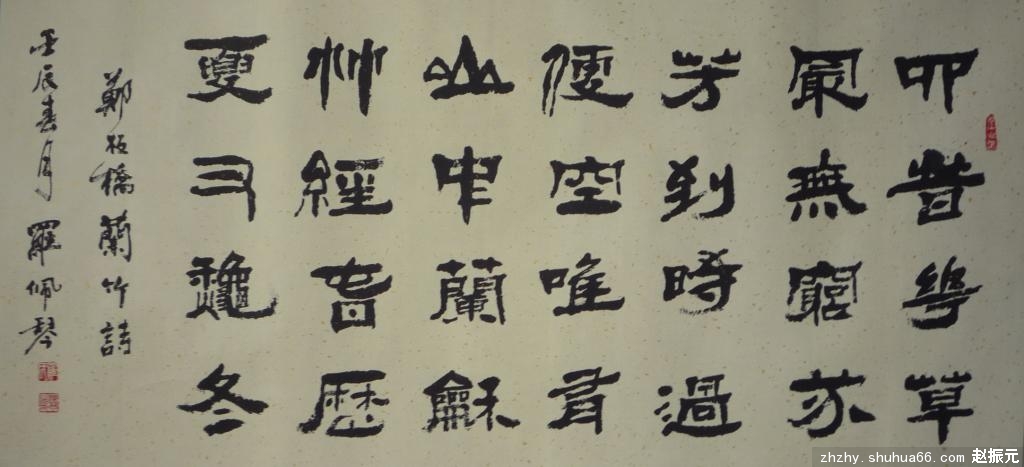 四旹花草
最無窮芬
芳到時過
便空唯有
山中蘭龢
竹經旾歷
夏又龝冬
鄭板橋蘭竹詩
壬辰春月羅佩琴
zhzhy.shuhua66.com 赵振元